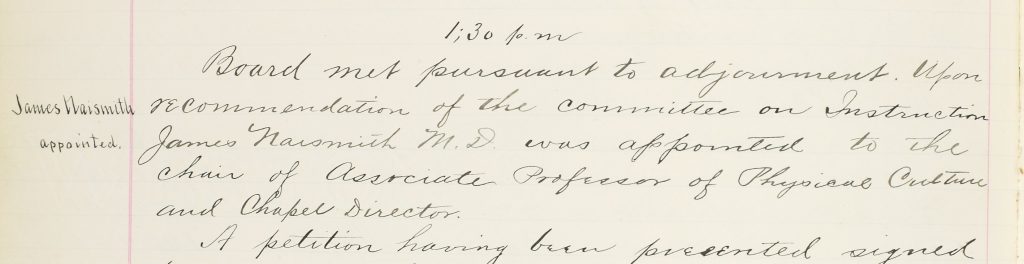 1;30 p.m
Board met pursuant to adjourment. Upon
James Naismith
appointed.
recommendation of the committee on Instruction
James Naismith M.D. was appointed to the
chair of Associate Professor of Physical Culture
and Chapel Director.
A petition having been presented signed